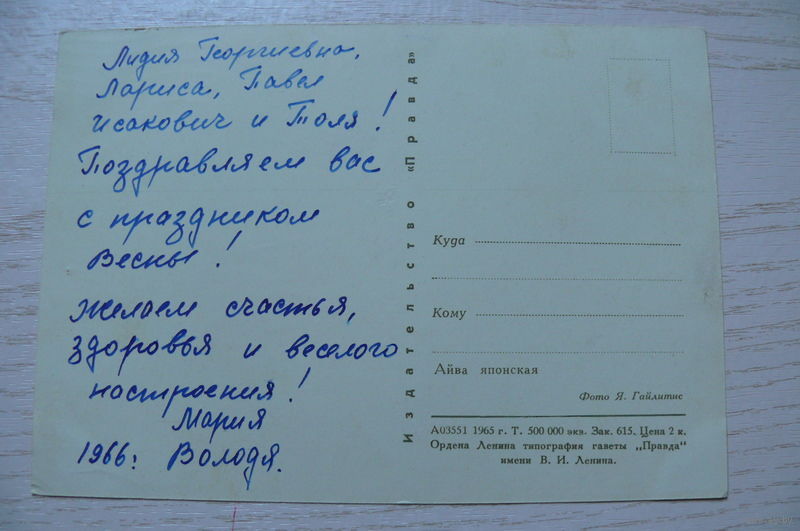 Лидия Георгиевна,
Лариса, Павел
Исакович и Толя!
Поздравляем вас
с праздником
Весны!
Желаем счастья,
здоровья и веселого
настроения!
Мария
1966: Володя.
Издательство «Правда»
Куда
Кому
Айва японская
Фото Я. Гайлитис
А03551 1965 г. Т. 500 000 экз. Зак. 615. Цена 2 к.
Ордена Ленина типография газеты „Правда“
имени В. И. Ленина.